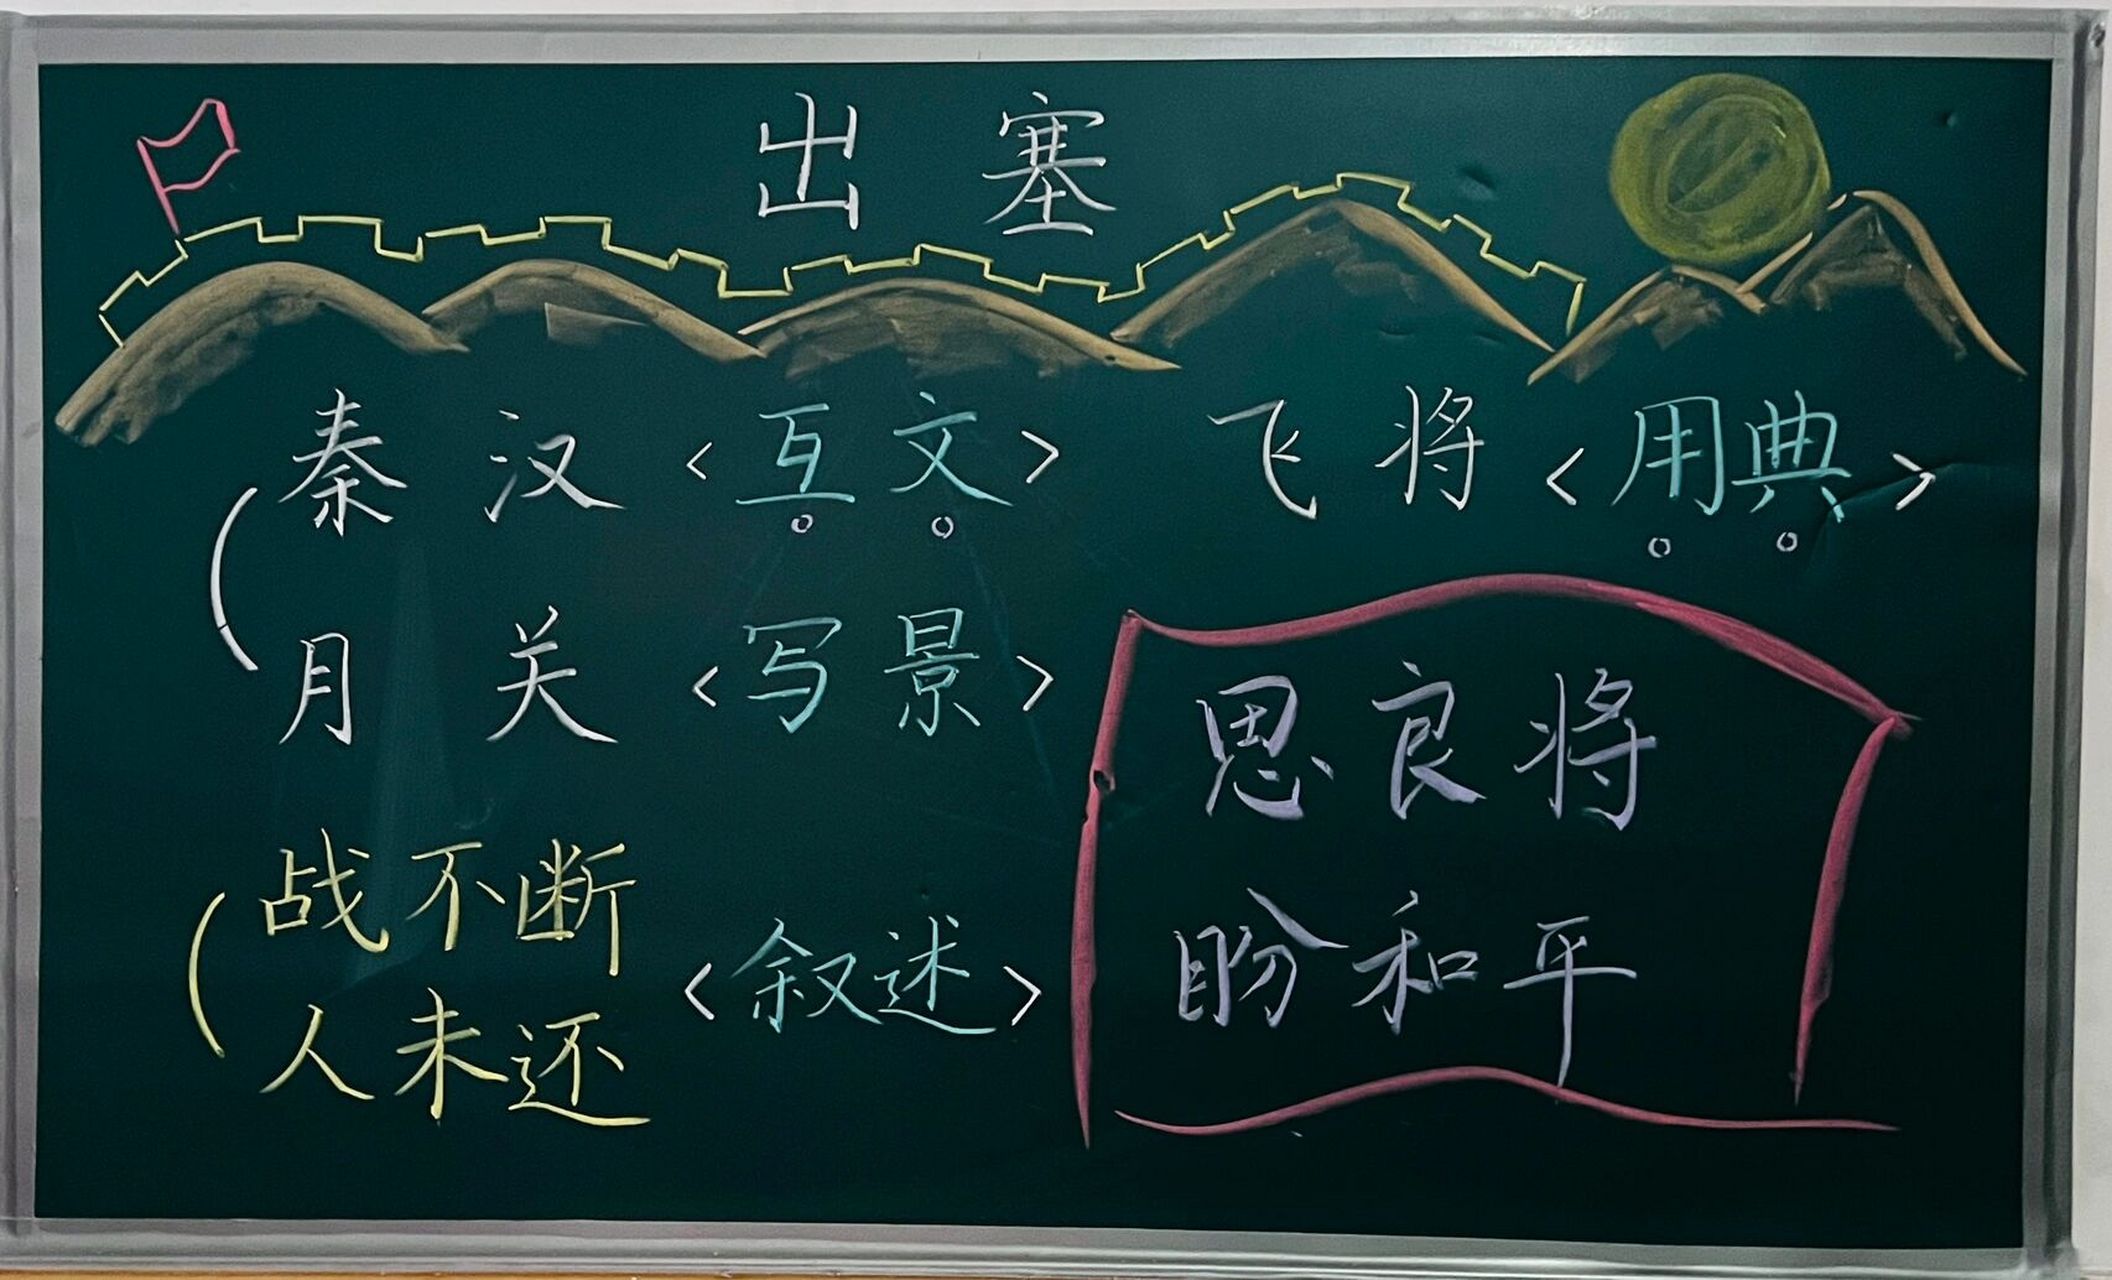 出 塞
秦 汉 <互文> 飞将 <用典>
月 关 <写景>
思良将
战不断
<叙述> 盼和平
人未还